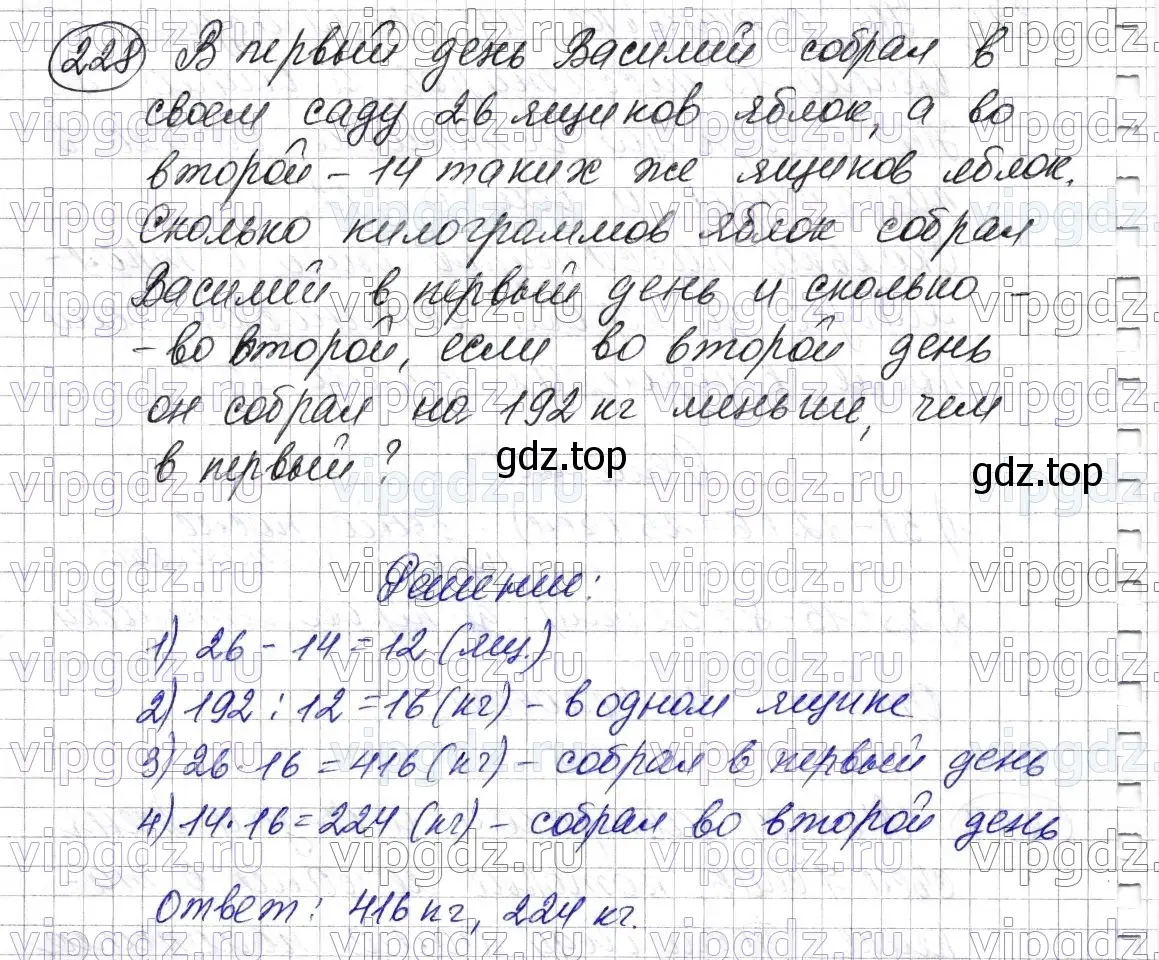 228 В первый день Василий собрал в
своем саду 26 ящиков яблок, а во
второй – 14 таких же ящиков яблок.
Сколько килограммов яблок собрал
Василий в первый день и сколько -
- во второй, если во второй день
он собрал на 192 кг меньше, чем
в первый?
gdz.top
gdz.top
Решение:
1) 26 - 14 = 12 (ящ.)
2) 192 : 12 = 16 (кг) - в одном ящике
3) 26 · 16 = 416 (кг) - собрал в первый день
4) 14 · 16 = 224 (кг) - собрал во второй день
Ответ: 416 кг, 224 кг.